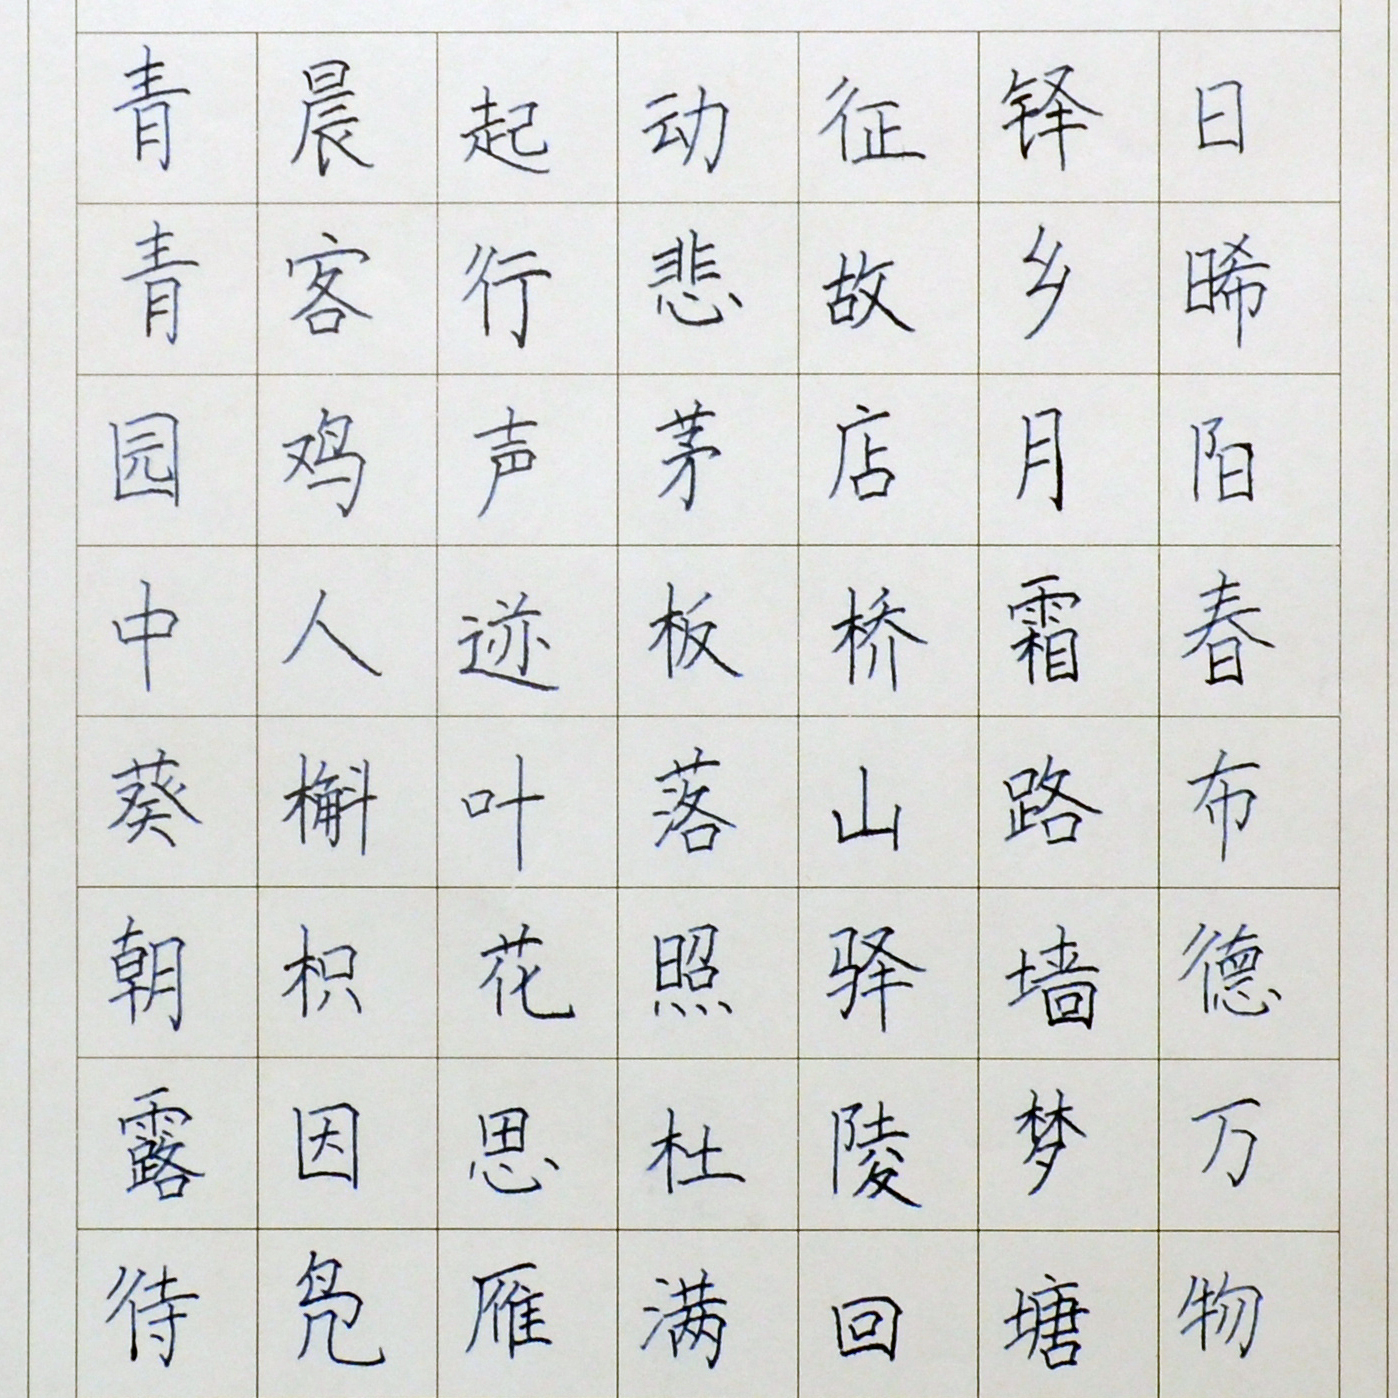 青晨起动征铎日
青客行悲故乡晞
园鸡声茅店月阳
中人迹板桥霜春
葵槲叶落山路布
朝枳花照驿墙德
露因思杜陵梦万
待凫雁满回塘物